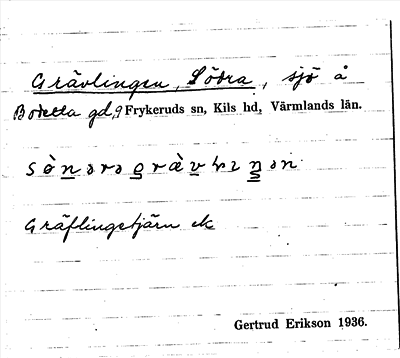 Grävlingen, Södra, sjö å
Botetta gd, Frykeruds sn, Kils hd, Värmlands län.
Gräflingetjärn ek
Gertrud Erikson 1936.